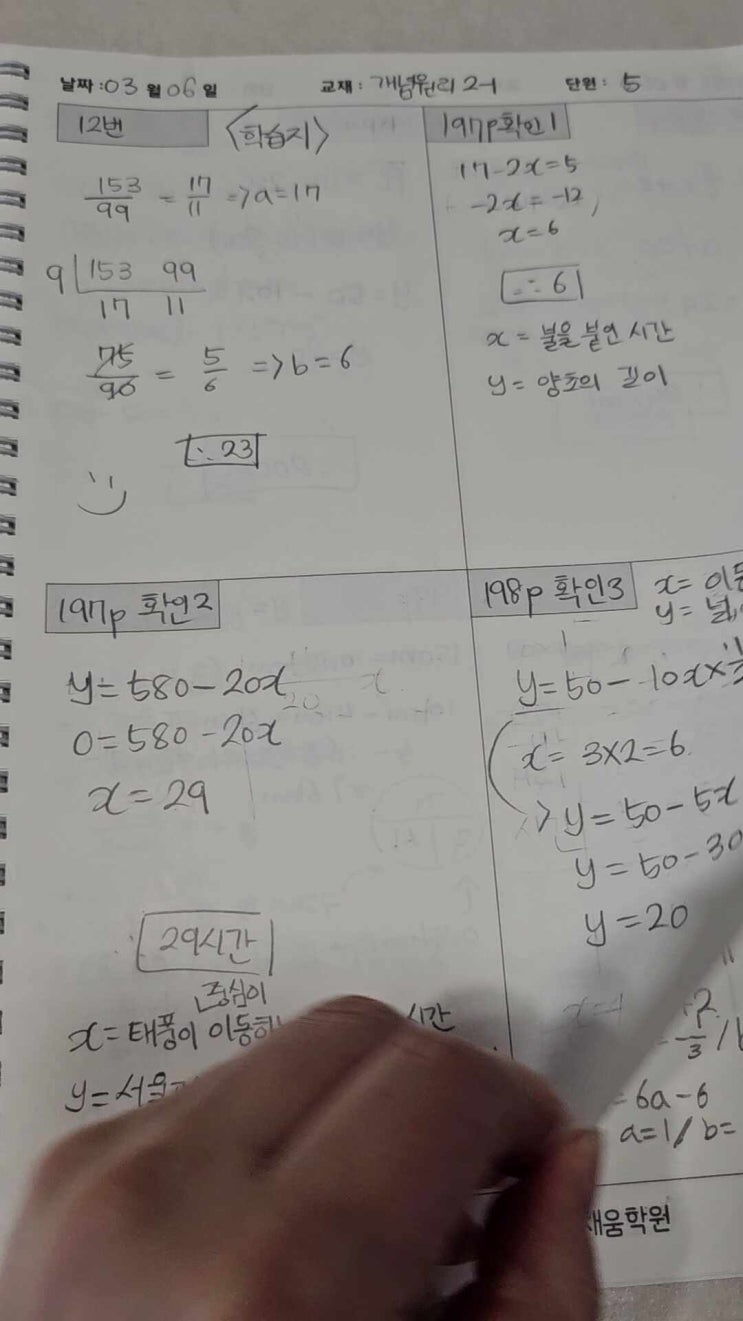 날짜 : 03 월 06 일 교재 : 개념원리 2-1 단원 : 5
12번 <학습지>
153/99 = 17/11 => a=17
9 153 99
17 11
75/90 = 5/6 => b=6
∴ 23
197p 확인1
17-2x=5
-2x=-12,
x=6
∴ 6
x= 불을 붙인 시간
y= 양초의 길이
197p 확인2
y=580-20x
0=580-20x
x=29
∴ 29시간
중심이
x=태풍이 시간
y=
198p 확인3
x=
y=
y=50-10x×
x=3×2=6
y=50-5x
y=50-30
y=20
=6a-6
a=1/b=
채움학원